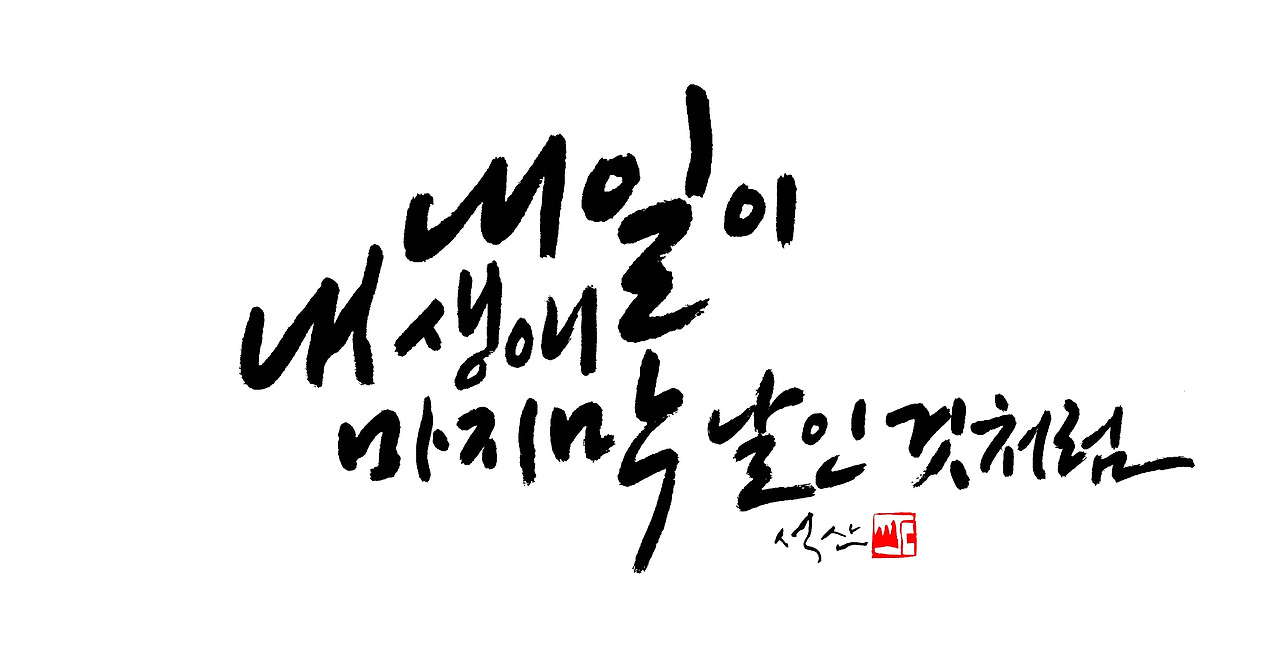 내일이
내 생애
마지막 날인 것처럼
석산